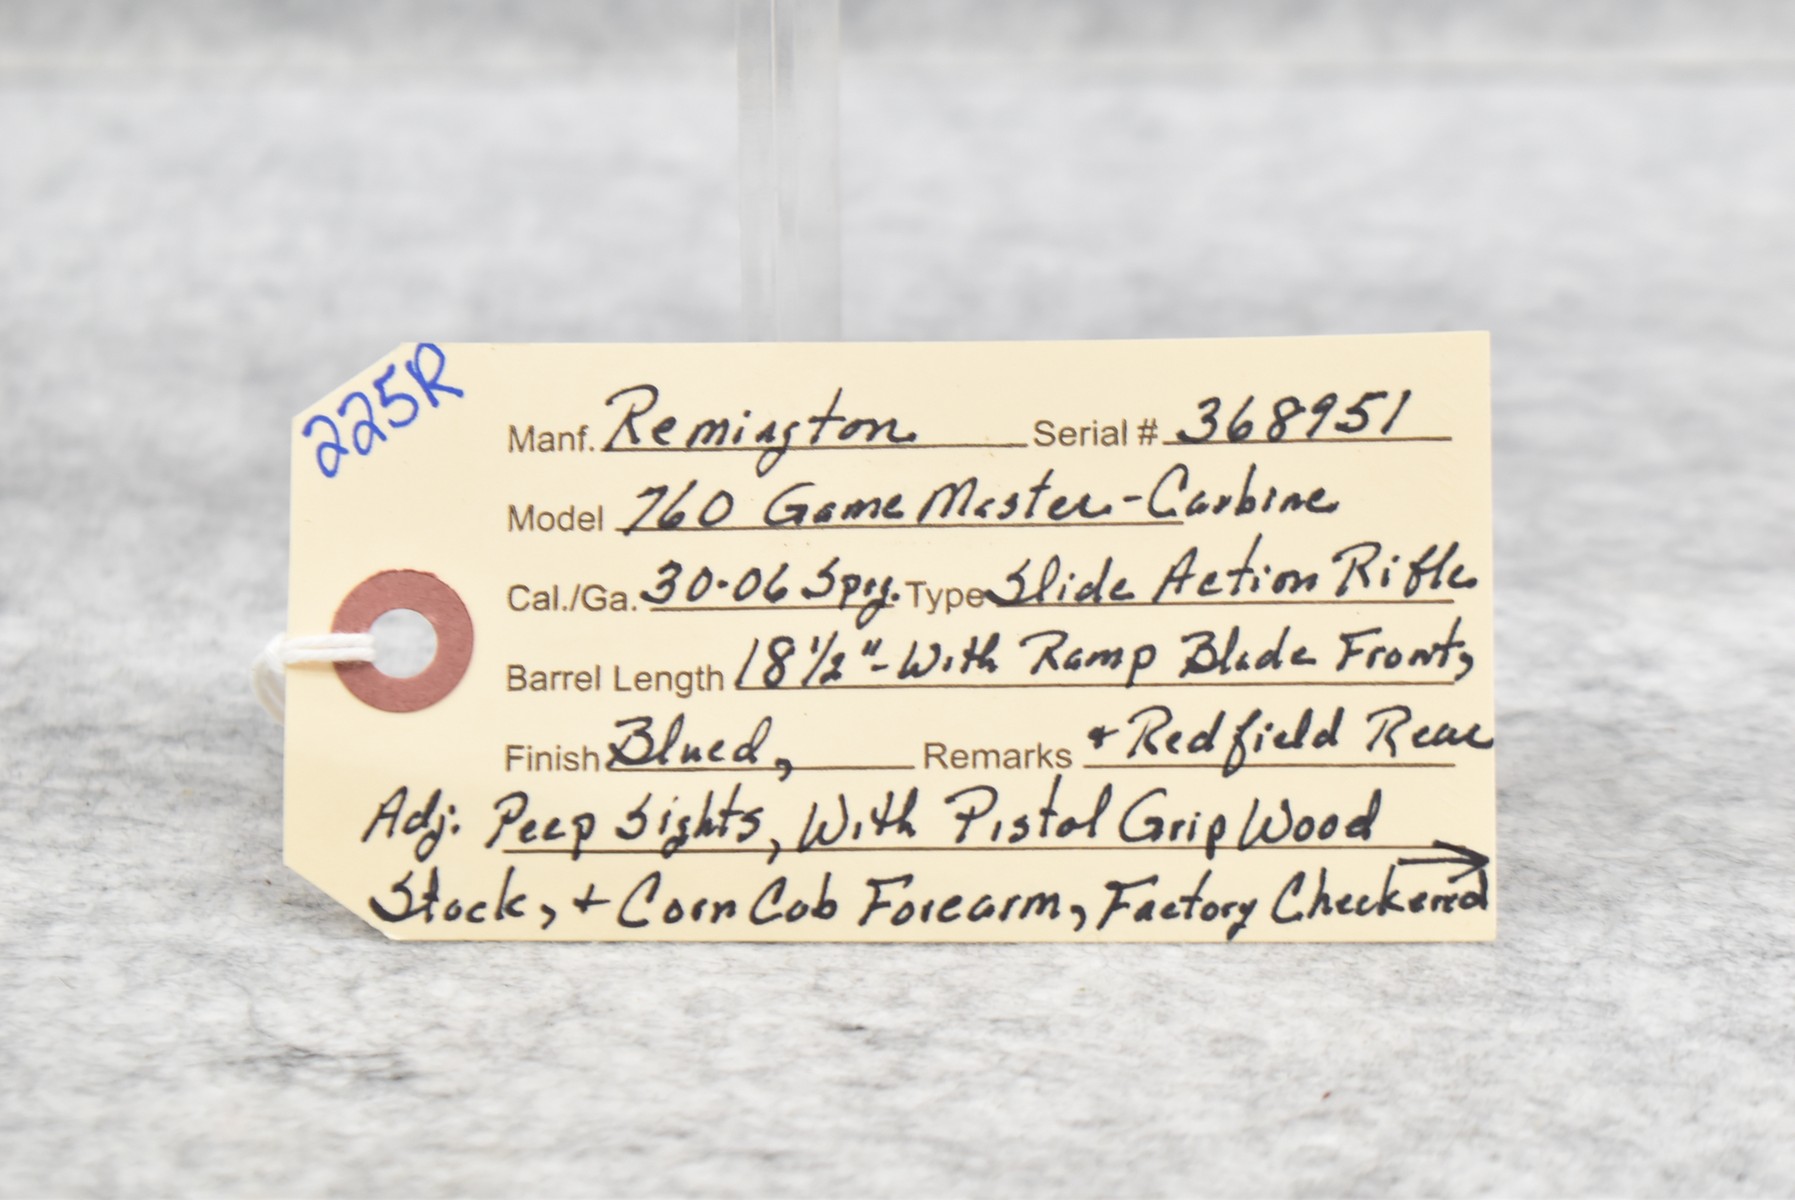 225R
Manf. Remington Serial # 368951
Model 760 GameMaster-Carbine
Cal./Ga. 30-06 Sprg. Type Slide Action Rifle
Barrel Length 18 1/2" - With Ramp Blade Front,
Finish Blued, Remarks + Redfield Rear
Adj. Peep Sights, With Pistol Grip Wood
Stock, + Corn Cob Forearm, Factory Checkered →